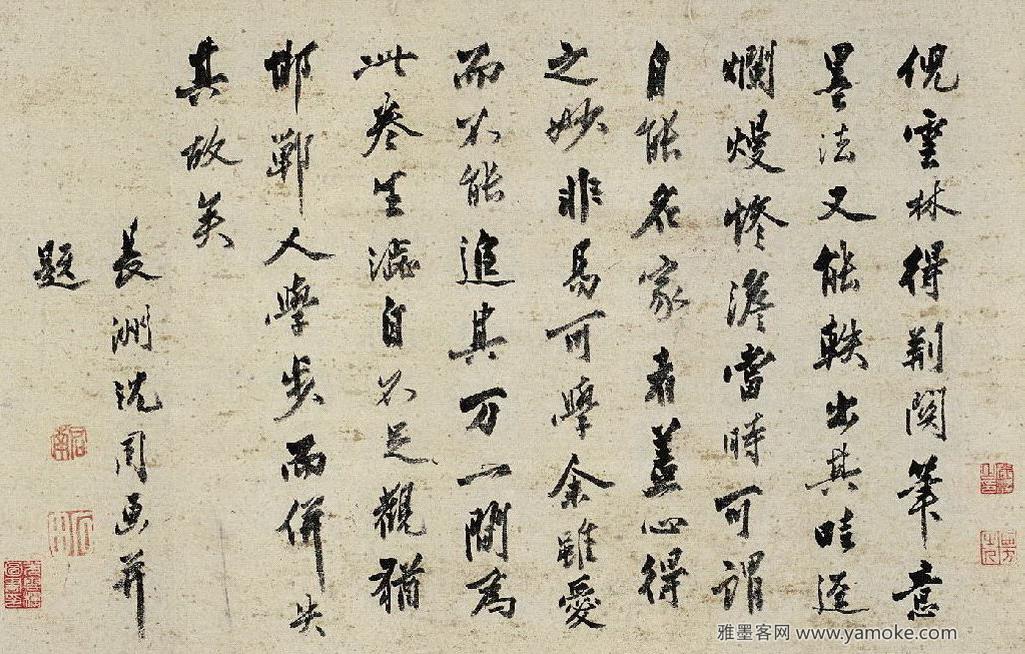 倪雲林得荆関筆意
墨法又能軼出其畦逕
爛熳惨澹當時可謂
自能名家者蓋心得
之妙非易可學余雖愛
而不能追其万一間為
此卷生澁自不足觀猶
邯鄲人學步而併失
其故矣
長洲沈周画并
題
雅墨客网 www.yamoke.com